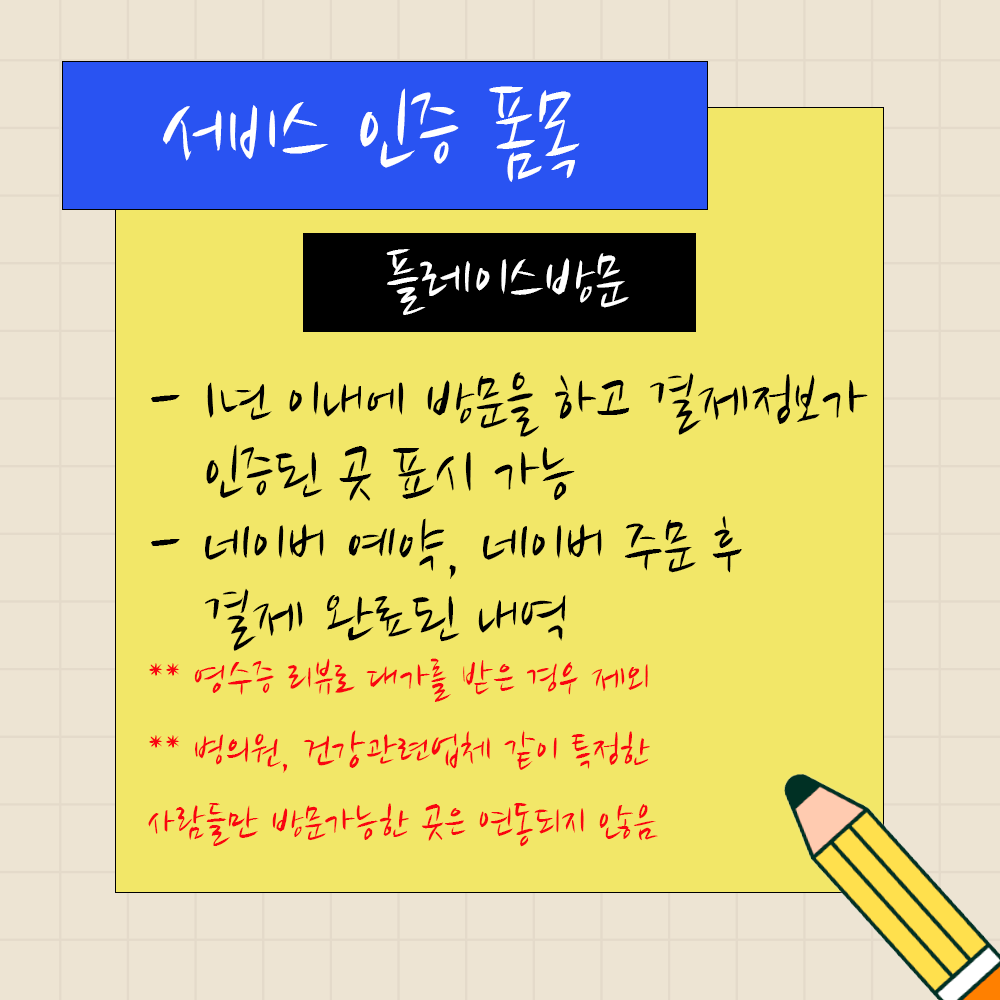 서비스 인증 품목
플레이스방문
- 1년 이내에 방문을 하고 결제정보가
인증된 곳 표시 가능
- 네이버 예약, 네이버 주문 후
결제 완료된 내역
** 영수증 리뷰로 대가를 받은 경우 제외
** 병의원, 건강관련업체 같이 특정한
사람들만 방문가능한 곳은 연동되지 않음